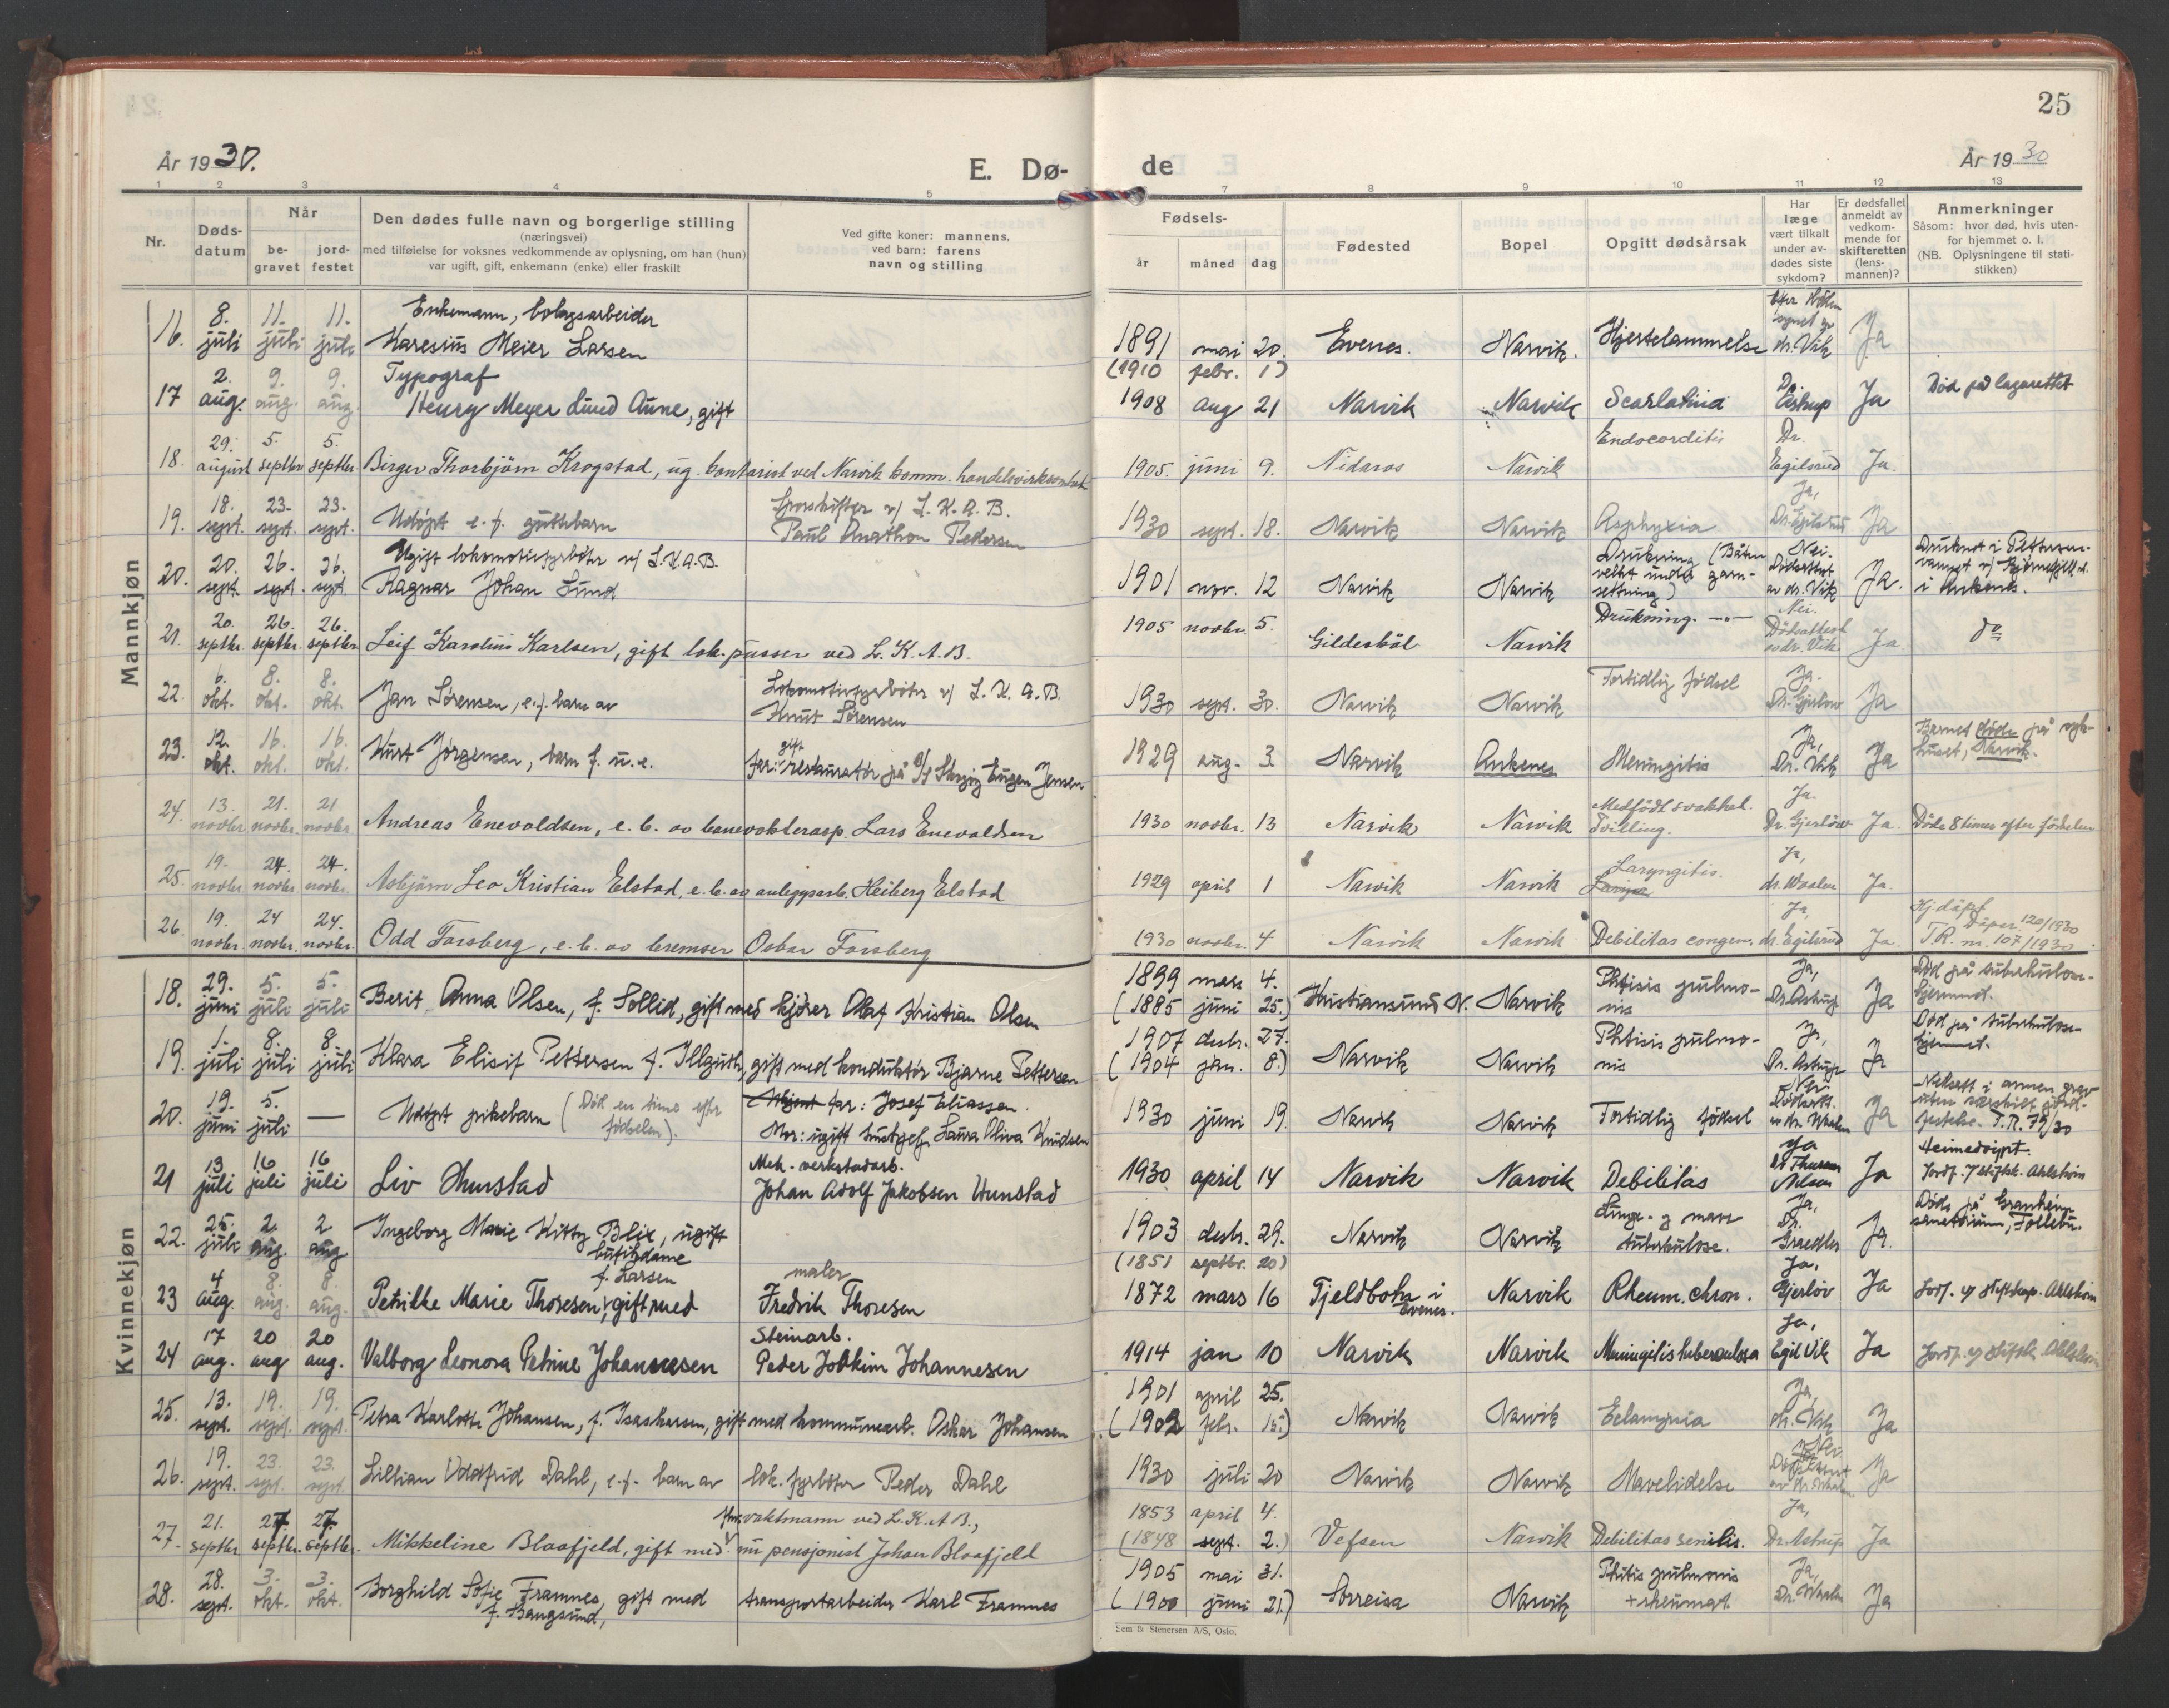 25
År 1930.
E. Dø-
de
År 1930
1 2 3 4 5 7 8 9 10 11 12 13
Nr.
Døds-
datum
Når
be-
gravet
jord-
festet
Den dødes fulle navn og borgerlige stilling
(næringsvei)
med tilføielse for voksnes vedkommende av oplysning, om han (hun)
var ugift, gift, enkemann (enke) eller fraskilt
Ved gifte koner: mannens,
ved barn: farens
navn og stilling
Fødsels-
år måned dag
Fødested
Bopel
Opgitt dødsårsak
Har
læge
vært tilkalt
under av-
dødes siste
sykdom?
Er dødsfallet
anmeldt av
vedkom-
mende for
skifteretten
(lens-
mannen)?
Anmerkninger
Såsom: hvor død, hvis uten-
for hjemmet o. l.
(NB. Oplysningene til stati-
stikken)
Mannkjøn
16. 8. juli 11. juli 11. juli Enkemann, bolagsarbeider
Haresius Meier Larsen 1891 mai 20. Evenes. Narvik. Hjertelammelse dr. Vik Ja
17 2. aug. 9. aug. 9. aug. Typograf
Henry Meyer Lund Aune, gift (1910 febr. 1) 1908 aug 21 Narvik Narvik Scarlatina Dr. Astrup Ja Død på lazarettet
18. 29. august 5. septbr 5. septbr. Birger Thorbjörn Krogstad, ug. kontorist ved Narvik komm. handelsvirksomhet 1905. juni 9. Nidaros Narvik Endocorditis Dr. Egilsrud Ja.
19. 18. sept. 23. sept. 23. sept. Udøpt e. f. guttebarn Sporskifter v/ L. K. A. B.
Paul Anathon Pedersen 1930 sept. 18. Narvik Narvik Asphyxia Ja, Dr. Egilsrud Ja
20. 20. sept. 26. sept. 26. sept. Ugift lokomotivfyrbøter v/ L.K.A.B.
Ragnar Johan Lund 1901 nov. 12 Narvik Narvik Drukning (Båten
veltet under garn-
setning) Nei. Dødsattest av dr. Vik Ja. Druknet i
i Ankenes.
21. 20. septbr. 26. septbr. 26. septbr Leif Karolius Karlsen, gift lok. pusser ved L. K. A. B. 1905 novbr. 5. Gildeskål Narvik Drukning. -"- Nei. Dödsattest av dr. Vik Ja. do
22. 6. okt. 8. okt. 8. okt. Jan Sørensen, e.f. barn av Lokomotivfyrbøter v/ L. K. A. B.
Knut Sørensen 1930 sept. 30. Narvik Narvik Fortidlig fødsel Ja. Dr. Gjerløv Ja
23. 12. okt. 16. okt. 16. okt. Kurt Jørgensen, barn f. u. e. far: gift restauratør på Eugen Jensen 1929 aug. 3 Narvik Ankenes Meningitis Ja, Dr. Vik Ja Barnet døde på syke-
huset, Narvik.
24. 13. novbr. 21. novbr. 21 novbr Andreas Enevoldsen, e. b. av banevokterasp. Lars Enevaldsen 1930 novbr. 13 Narvik Narvik Medfödt svakhet.
Tvilling. Ja. Dr. Gjerlöv Ja. Döde 8 timer efter födselen
25. 19. novbr 24. novbr 24. novbr. Asbjörn Leo Kristian Elstad, e. b. av anleggsarb. Heiberg Elstad 1929 april 1 Narvik Narvik Laryngitis. Ja, dr. Waaler Ja.
26. 19. novbr. 24 novbr. 24. novbr. Odd Forsberg, e. b. av bremser Oskar Forsberg 1930 novbr. 4 Narvik Narvik Debilitas congen. Ja, dr. Egilsrud Ja Hj. døpt
Døper. 120/1930
T.R. nr. 107/1930
Kvinnekjøn
18. 29. juni 5. juli 5. juli Berit Anna Olsen, f. Sollid, gift med kjører Olaf Kristian Olsen 1899 mars 4. (1885 juni 25.) Kristiansund N. Narvik Phtisis pulmo-
nis Ja, Dr. Astrup Ja Død på tuberkulose-
hjemmet.
19. 1. juli 8. juli 8. juli Klara Elisif Pettersen f. Illguth, gift med konduktør Bjarne Pettersen 1907 desbr. 27. (1904 jan. 8.) Narvik Narvik Phtisis pulmo-
nis Ja, Dr. Astrup Ja Død på tuberkulose-
hjemmet.
20. 19. juni 5. juli — Udøpt pikebarn (Død en time efter
fødselen). far: Josef Eliassen.
Mor: ugift Laura Oliva Knudsen 1930 juni 19. Narvik Narvik Fortidlig fødsel Nei. Dødsatt. av dr. Waaler Ja Nedsatt i annen grav
uten særskilt jord-
festelse. T.R. 79/30
21 13 juli 16 juli 16 juli Liv Hunstad Mek. verkstadarb.
Johan Adolf Jakobsen Hunstad 1930 april 14 Narvik Narvik Debilitas Ja Nilsen Ja Heimedøipt.
Jordf. Ahlstrøm
22. 25. juli 2. aug. 2 aug Ingeborg Marie Kitty Blix, ugift
butikdame 1903 desbr. 29. Narvik Narvik Lunge- g mave
tuberkulose. Ja, Dr. Graedler Ja. Døde på Granheim
sanatorium, Follebu.
23 4 aug. 8. aug. 8. aug. f. Larsen
Petrikke Marie Thoresen, gift med maler
Fredrik Thoresen (1851 septbr. 20) 1872 mars 16 Fjeldbotn i
Evenes. Narvik Rheum. chron. Ja, Gjerløv Ja Jordf. v/ stiftskap. Ahlstrøm
24 17 aug. 20 aug 20 aug. Valborg Leonora Petrine Johannesen Steinarb.
Peder Joakim Johannesen 1914 jan 10 Narvik Narvik Meningitis tuberculosa Ja, Egil Vik Ja Jordf. v/ stiftsk. Ahlstrøm
25. 13. sept. 19. sept. 19. sept. Petra Karlotte Johansen, f. Isaskarsen, gift med kommunearb. Oskar Johansen 1901 april 25. (1902 febr. 15.) Narvik Narvik Eclampsia Ja, dr. Vik Ja
26. 19. sept. 23. sept. 23. sept. Lillian Oddfrid Dahl, e.f. barn av lok. fyrbøter Peder Dahl 1930 juli 20 Narvik Narvik Mavelidelse Nei Dødsattest av dr. Waaler Ja
27. 21. septbr 27. septbr. 27. septbr. Mikkeline Blaafjeld, gift med fhv. vaktmann ved L.K.A.B.,
nu pensjonist Johan Blaafjeld 1853 april 4. (1848 sept. 2.) Vefsen Narvik Debilitas senilis. Ja, Dr. Astrup Ja
28. 28. sept. 3. okt. 3. okt. Borghild Sofie Framnes, gift med
f. Bangsund, transportarbeider Karl Framnes 1905 mai 31. (1900 juni 21.) Sørreisa Narvik Phtisis pulmonis
+ rheumat. Ja, Dr. Waaler Ja
Sem & Stenersen A/S, Oslo.